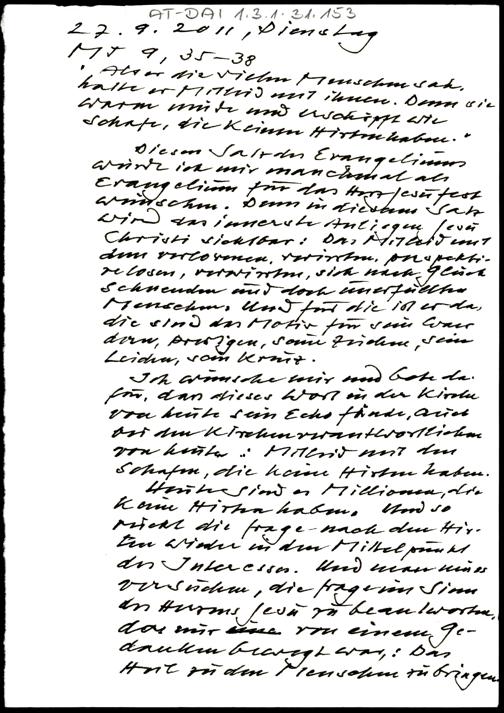 AT-DAI 1.3.1.31.153
27.9.2011, Dienstag
Mt 9, 35-38
"Als er die vielen Menschen sah,
hatte er Mitleid mit ihnen. Denn sie
waren müde und erschöpft wie
Schafe, die keinen Hirten haben."
Diesen Satz des Evangeliums
würde ich mir manchmal als
Evangelium für das Herz Jesu fest
wünschen. Denn in diesem Satz
wird das innerste Anliegen Jesu
Christi sichtbar: Das Mitleid mit
den verlorenen, verirrten, perspekti-
velosen, verwirrten, sich nach Glück
sehnenden und doch unerfüllten
Menschen. Und für die ist er da,
die sind das Motiv für sein Wan
dern, Predigen, seine Zeichen, sein
Leiden, sein Kreuz.
Ich wünsche mir und bete da
für, dass dieses Wort in der Kirche
von heute sein Echo fände, auch
bei den Kirchenverantwortlichen
von heute: Mitleid mit den
Schafen, die keine Hirten haben.
Heute sind es Millionen, die
keine Hirten haben. Und so
rückt die Frage nach den Hir-
ten wieder in den Mittelpunkt
des Interesses. Und man muss
versuchen, die Frage im Sinn
des Herrns Jesu zu beantworten,
der nur von einem Ge-
danken bewegt war,: Das
Heil zu den Menschen zu bringen